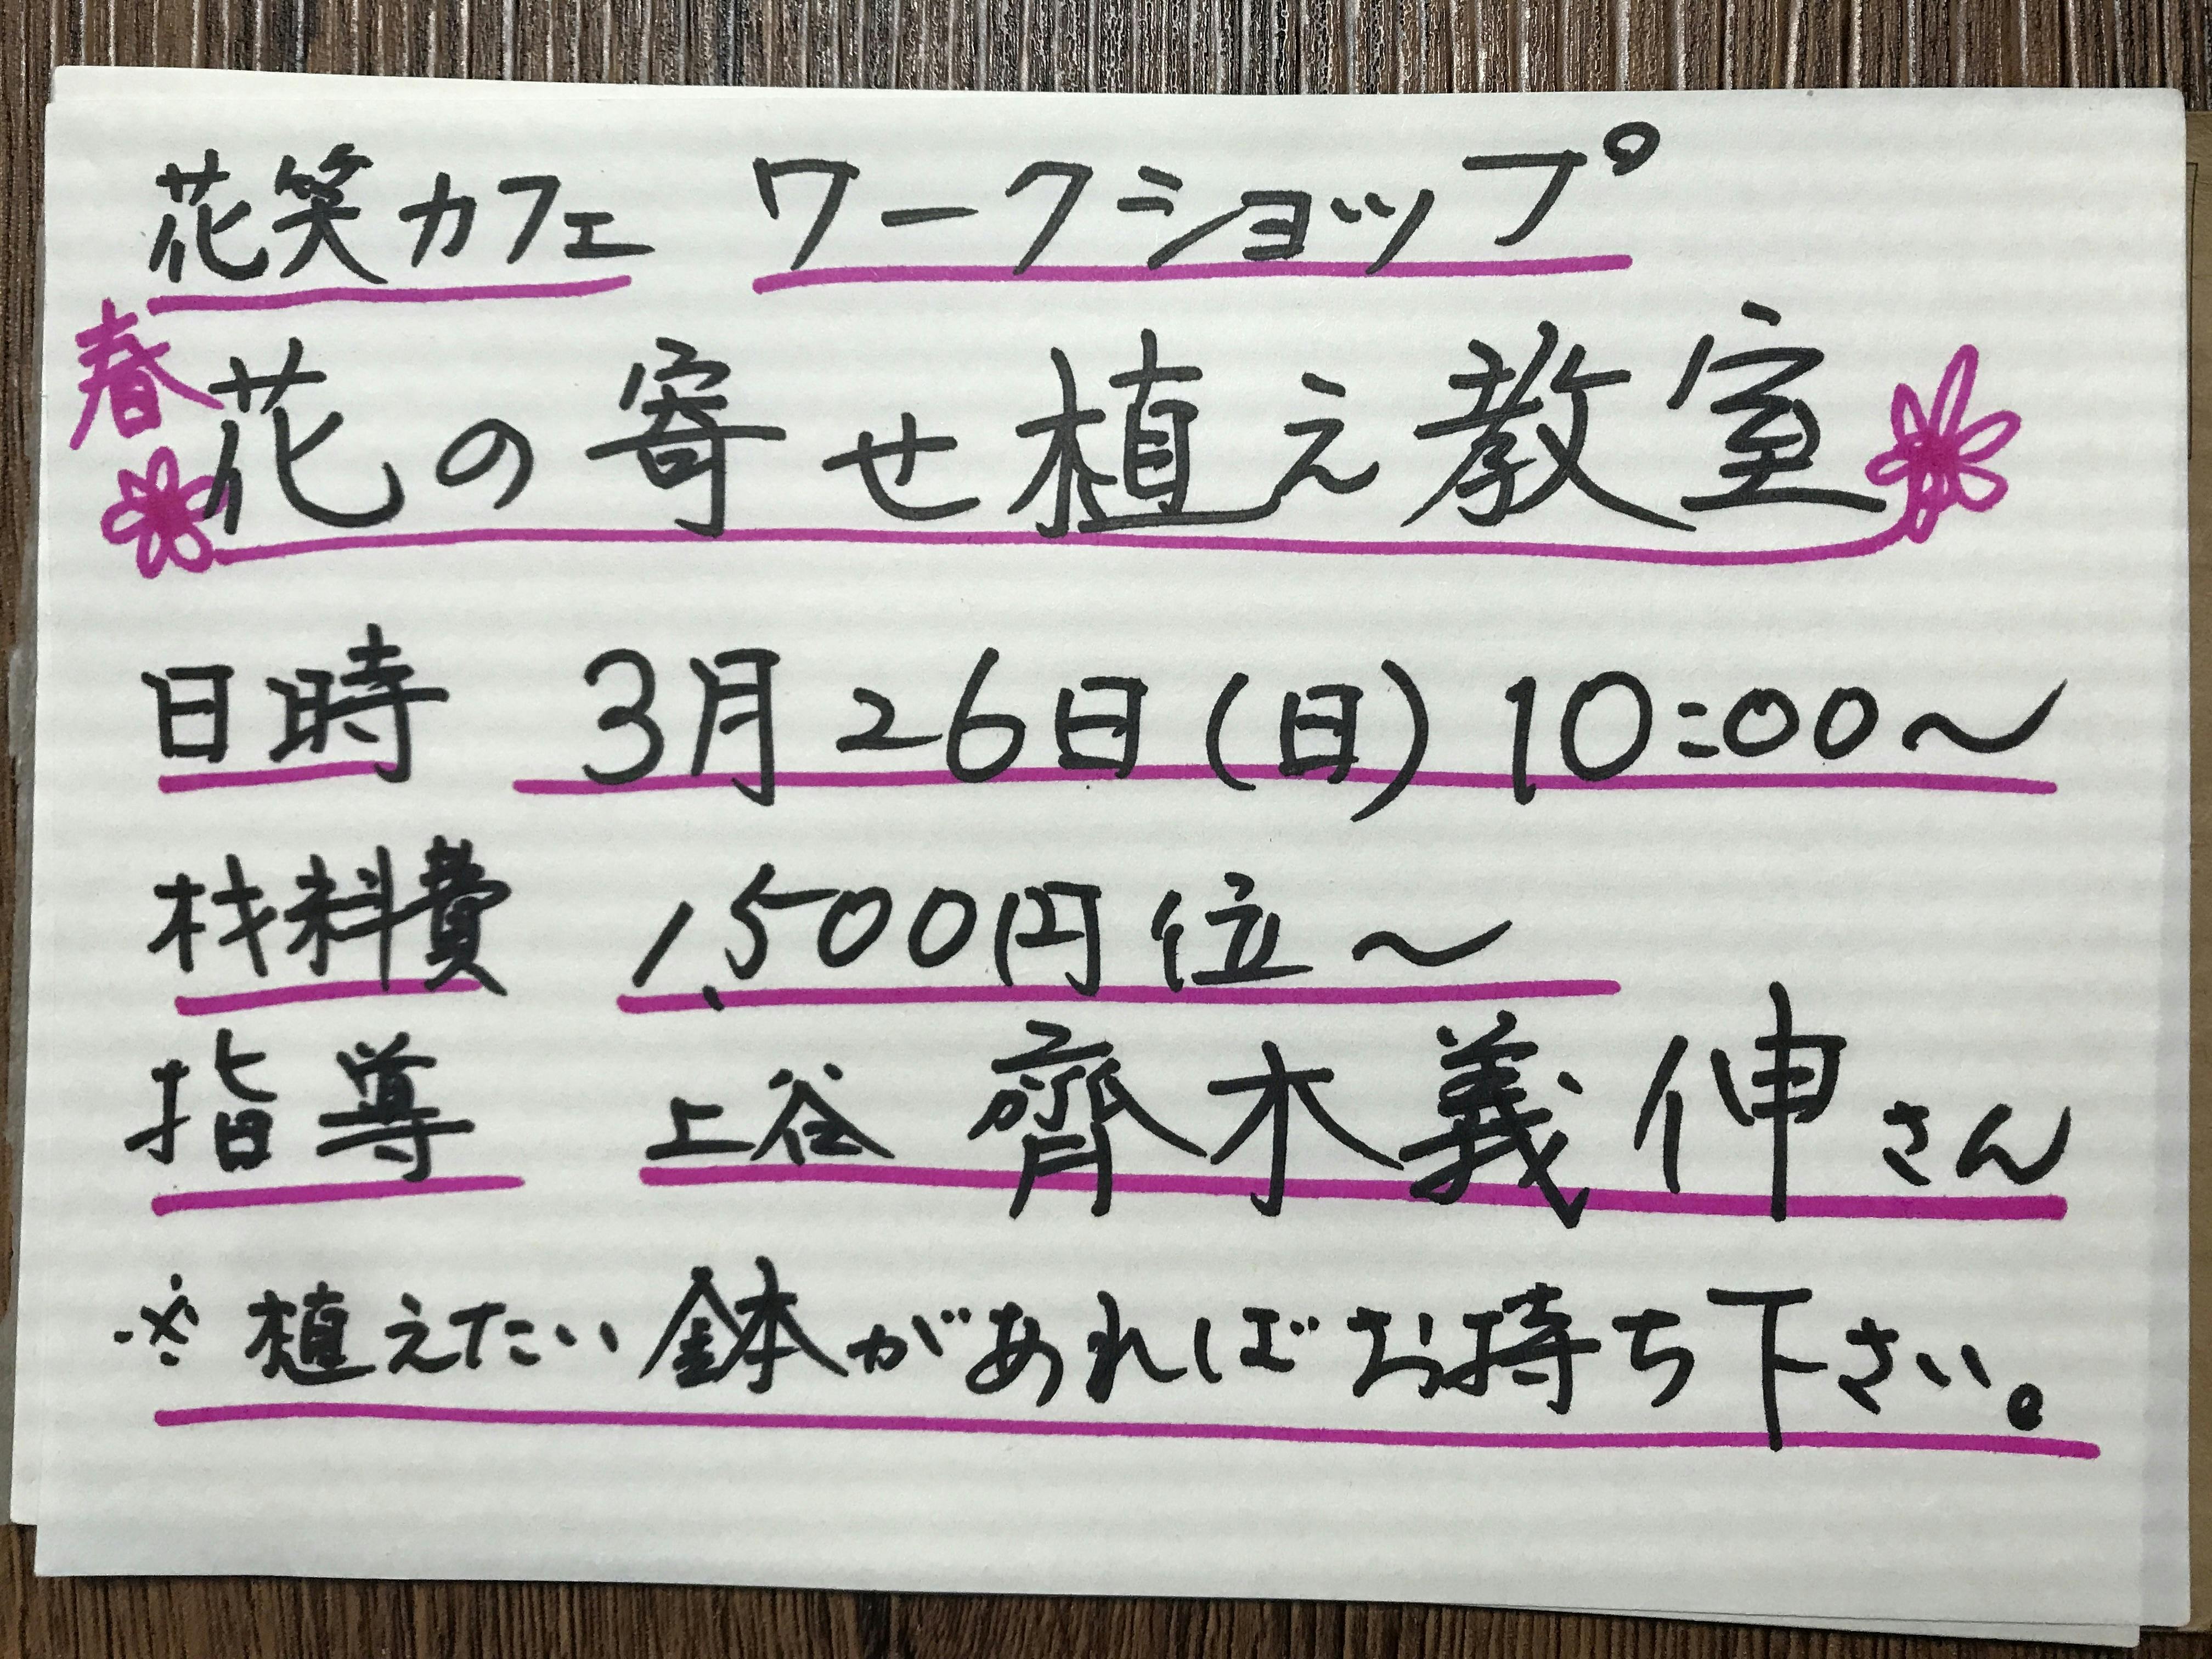 花笑カフェ ワークショップ
春
花の寄せ植え教室
日時 3月26日(日) 10:00〜
材料費 1,500円位〜
指導 上谷 齊木義伸さん
※植えたい鉢があればお持ち下さい。